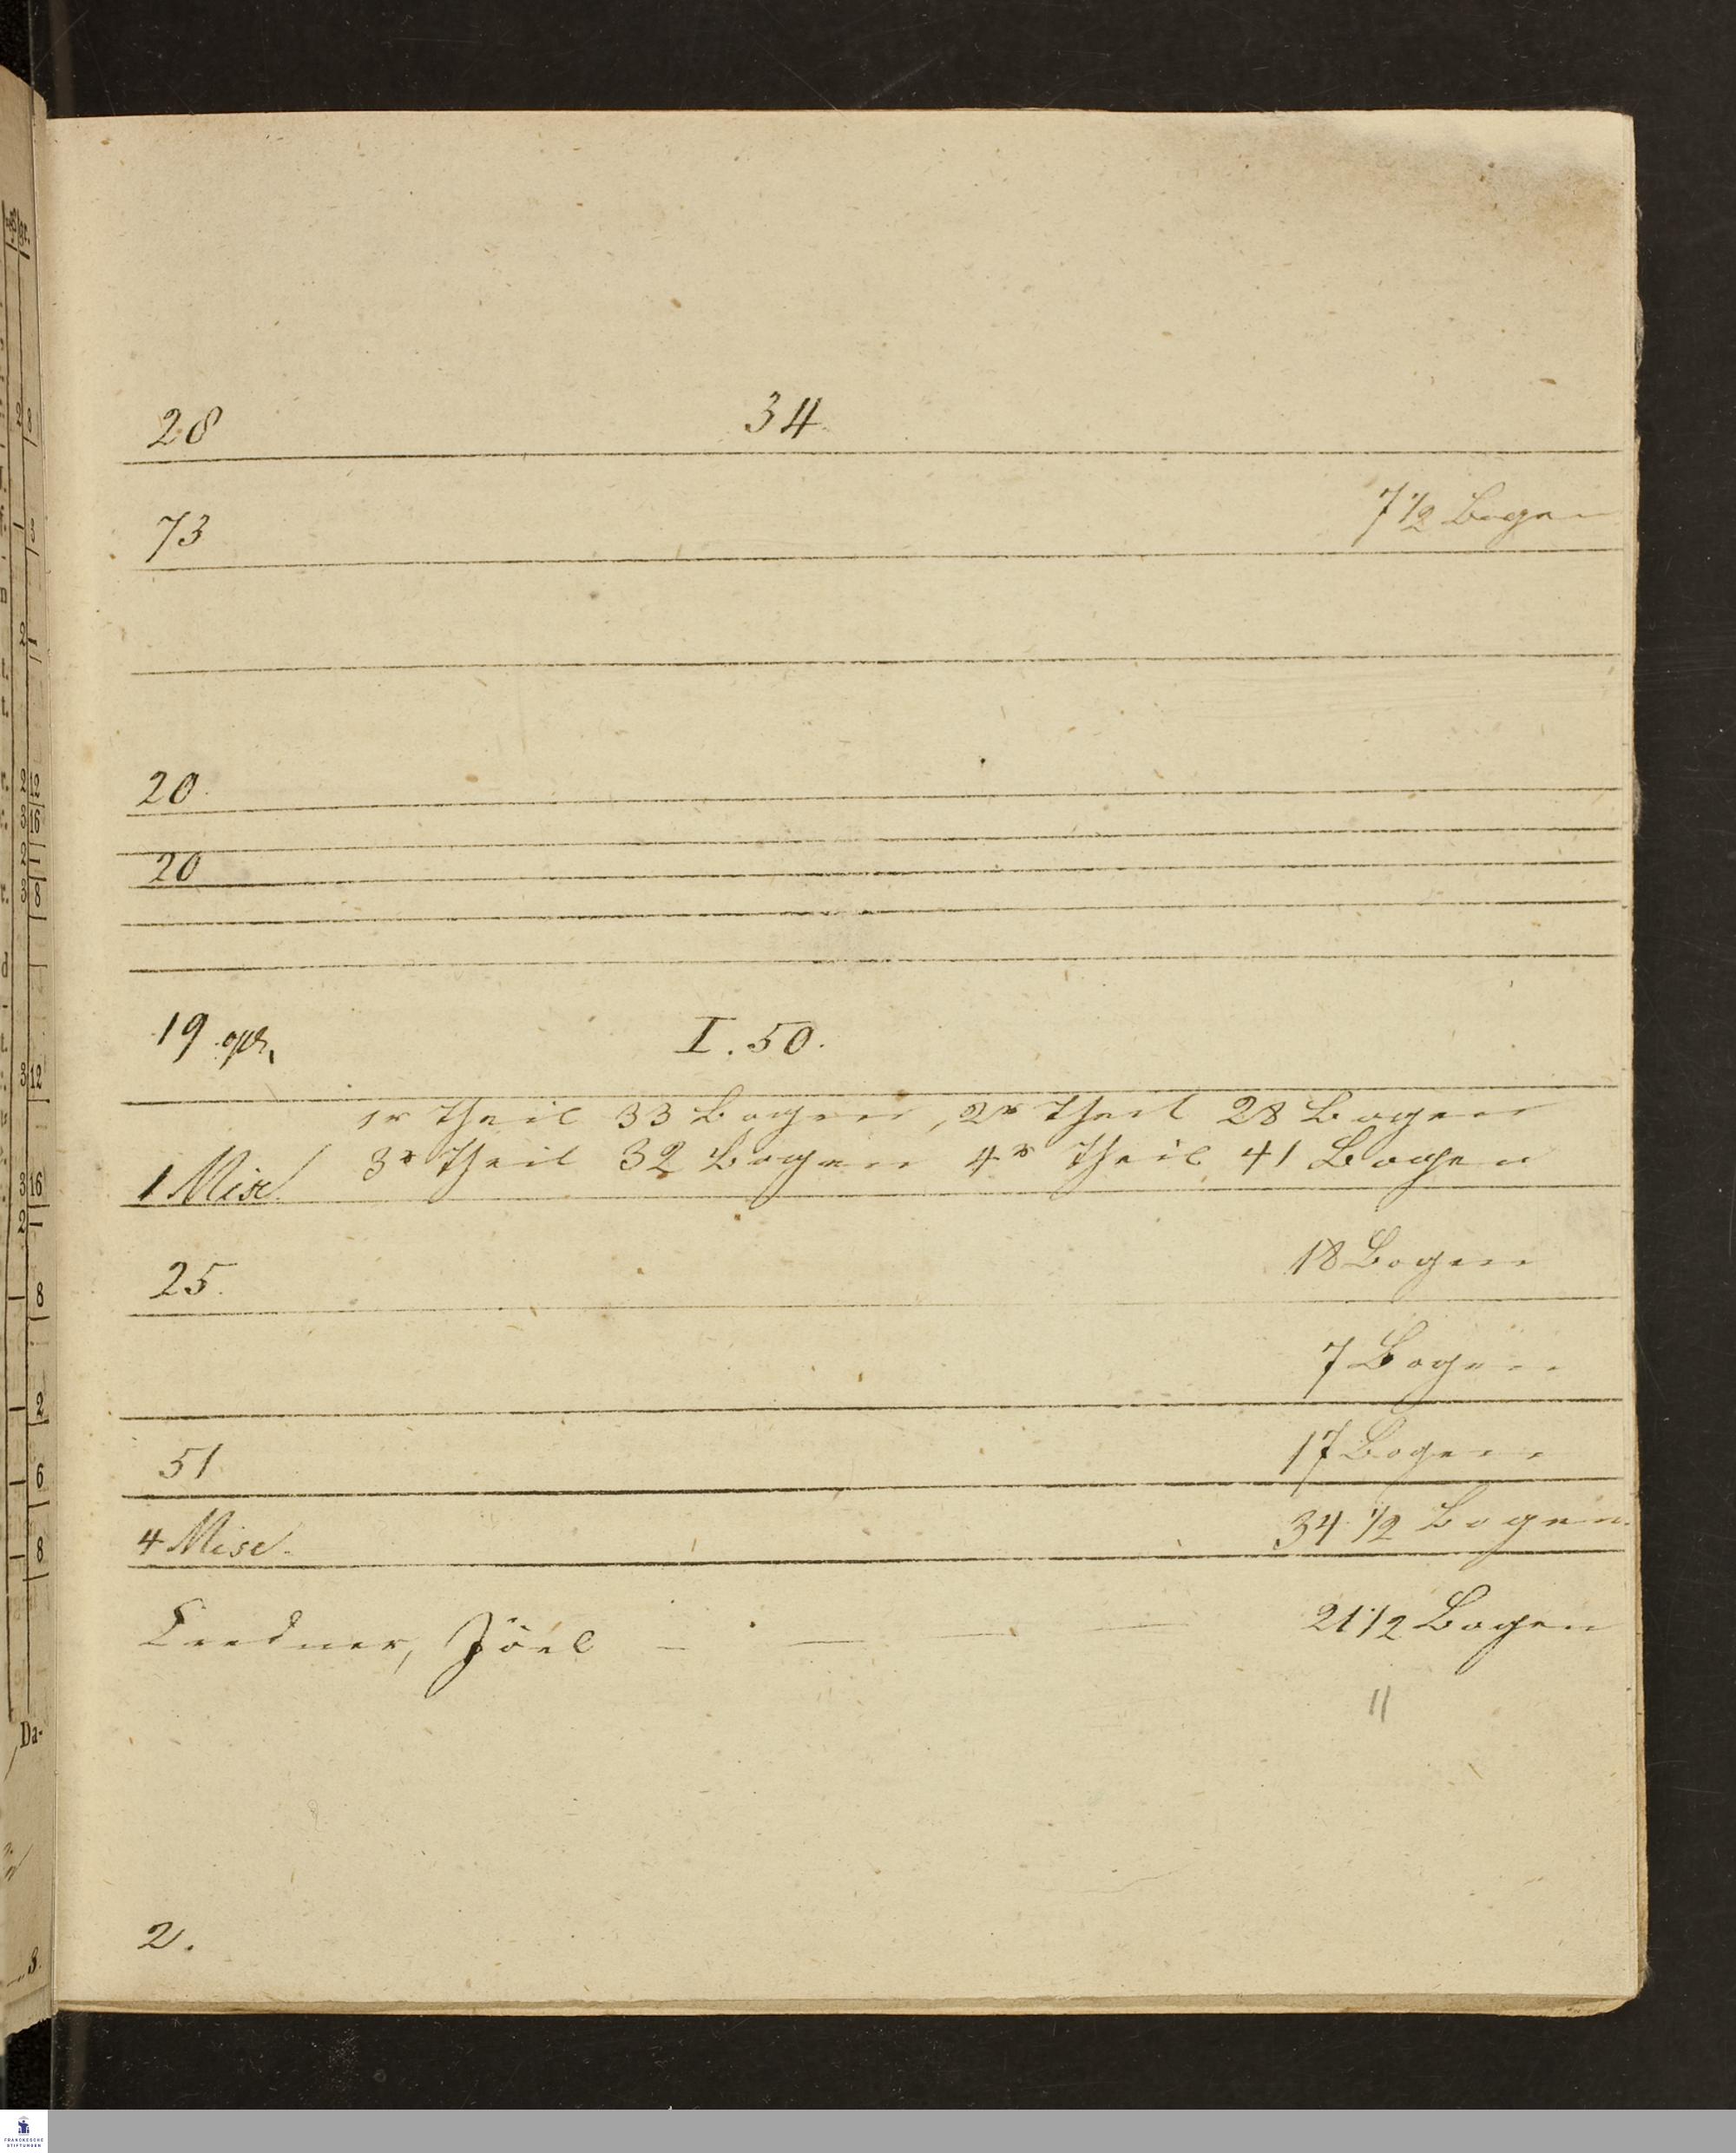 28 34.
73 7 1/2 Bogen
20.
20
19 I. 50.
1r Theil 33 Bogen, 2r Theil 28 Bogen
1 Misc. 3r Theil 32 Bogen 4r Theil 41 Bogen
25. 18 Bogen
7 Bogen
51 17 Bogen
4 Misc. 34 1/2 Bogen
Credner, Jöel — — — — 21 1/2 Bogen
2.
Da-
FRANCKESCHE
STIFTUNGEN